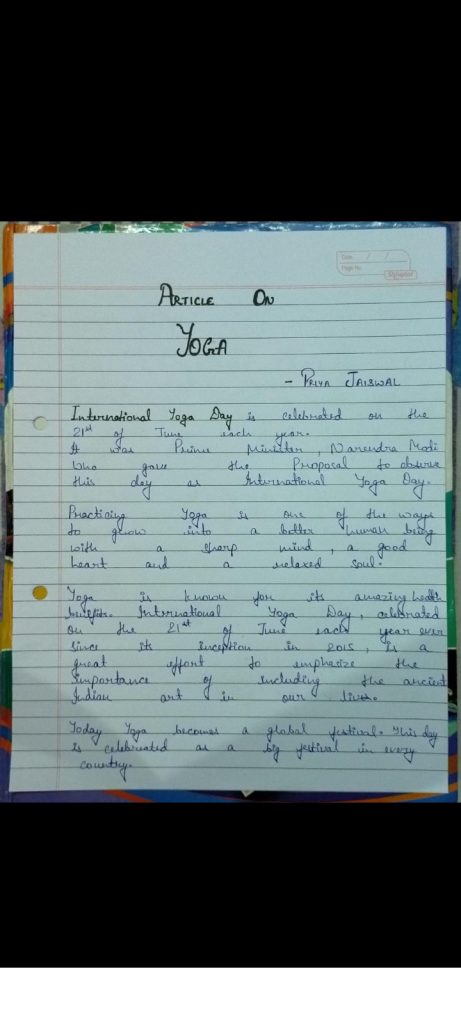 Date / /
Page No.
ARTICLE ON
YOGA
- PRIYA JAISWAL
International Yoga Day is celebrated on the
21st of June each year.
It was Prime Minister, Narendra Modi
who gave the Proposal to observe
this day as International Yoga Day.
Practicing Yoga is one of the ways
to grow into a better human being
with a sharp mind, a good
heart and a relaxed soul.
Yoga is known for its amazing health
benefits. International Yoga Day, celebrated
on the 21st of June each year ever
since its inception in 2015, is a
great effort to emphasize the
importance of including the ancient
Indian art in our lives.
Today Yoga becomes a global festival. This day
is celebrated as a big festival in every
country.